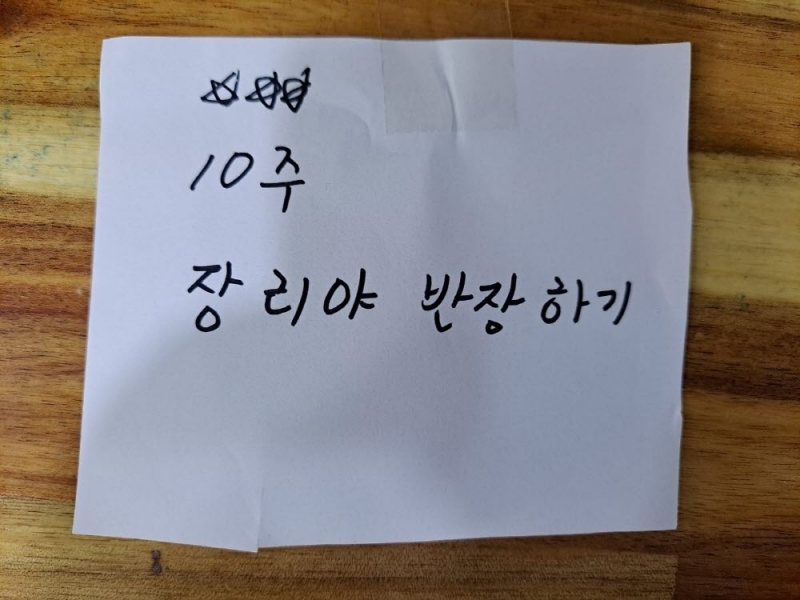 ☆☆☆
10주
장리야 반장하기